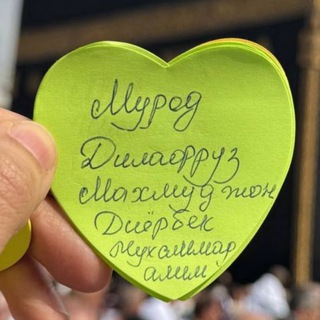 Мурод
Дилафруз
Махмуджон
Диёрбек
Мухаммад
амин